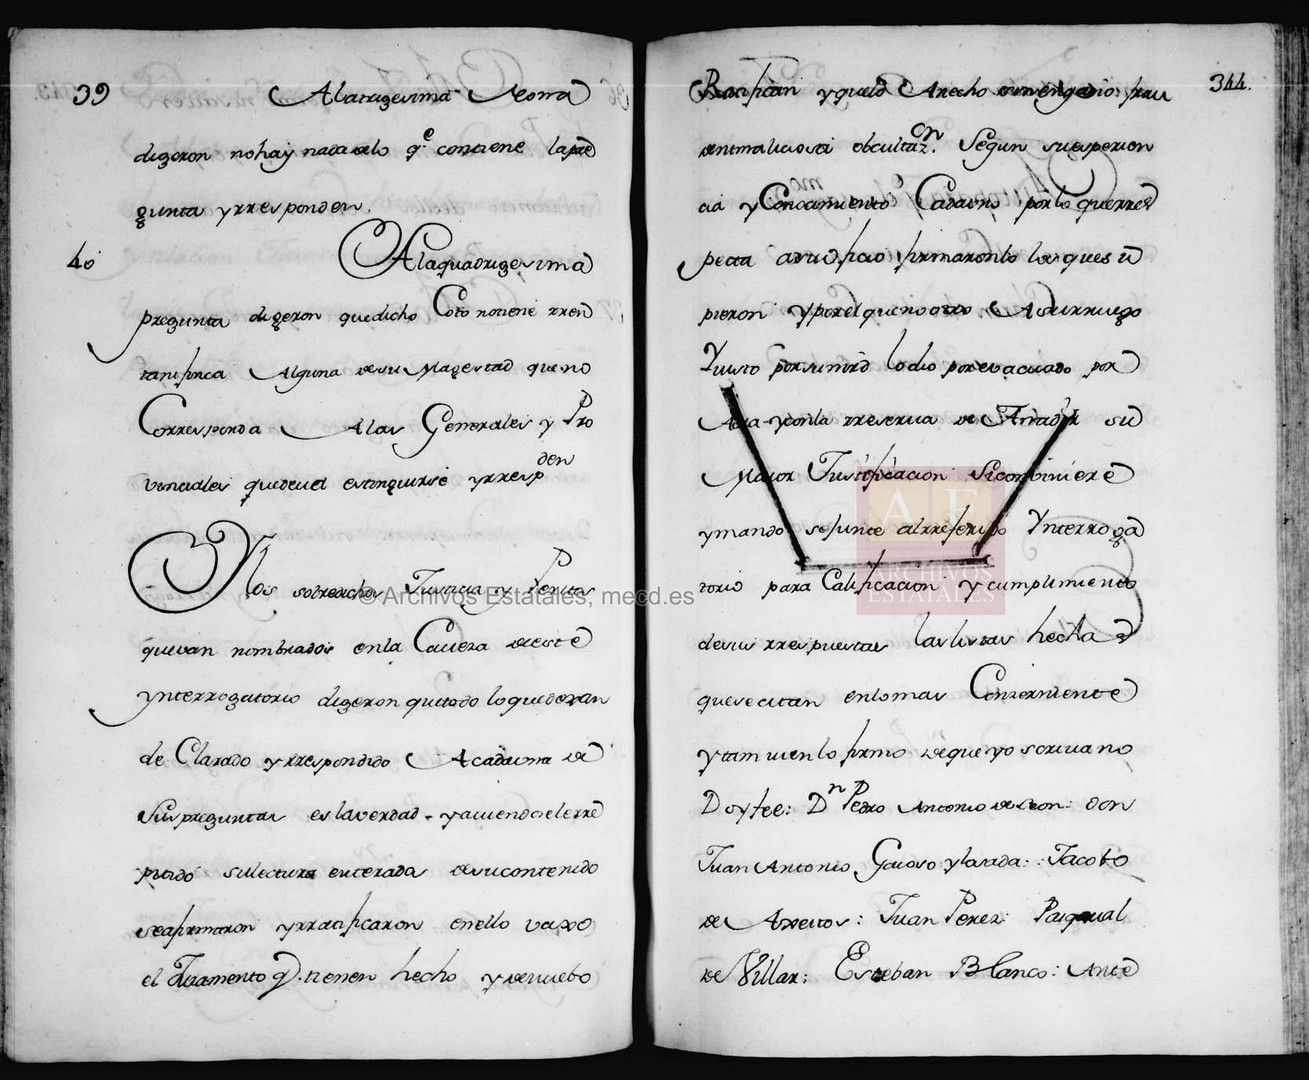 39 Alatrigesima Nona
digeron nohay nada delo q.e contiene lapre
gunta yrresponden.
40 Alaquadrigesima
pregunta digeron quedicho Coto notiene rren
tani finca Alguna desu Magestad queno
Corresponda Alas Generales y Pro
vinciales quedeva estinguirse yrrespden
Nos sobredichos Justicia y Peritos
quevan nombrados enla Caveza deeste
ynterrogatorio digeron quetodo loquedexan
de Clarado yrrespondido Acadauna de
Suspreguntas eslaverdad. yaviendoselerre
petido sulectura enterados desucontenido
seafirmaron yrratificaron enello vaxo
el Juramento q.e tienen hecho ydenuebo
344.
Ratifican yquelo Anecho sinengaño: frau
denimaliciosa ocultaz.on Segun suesperien
cia yConocimiento Cadauno porlo querres
pecta asuoficio firmaronlo losquesu
pieron yporelqueno otro Asurruego
Yvisto porsumrd lodio porevacuado por
Aora yconla rreserva de Añadir su
Maior Justificacion Siconbiniere
ymando sejunte alrreferido Ynterroga
torio para Calificacion ycumplimiento
desus rrespuestas laslistas hechas
quesecitan enlomas Conzerniente
ytamvien lo firmo dequeyo scrivano
Doyfee: Dn Pedro Antonio deLeon: don
Juan Antonio Gaioso ylosada: Jacobo
de Areitos: Juan Perez: Pasqual
de Villar: Esteban Blanco: Ante
© Archivos Estatales, mecd.es
AE
ARCHIVOS
ESTATALES